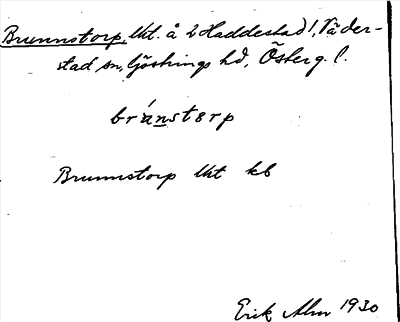 Brunnstorp, lht. å 2 Haddestad!, Väder-
stad sn, Göstrings hd, Österg. l.
bránstɵrp
Brunnstorp lht kb
Erik Alm 1930